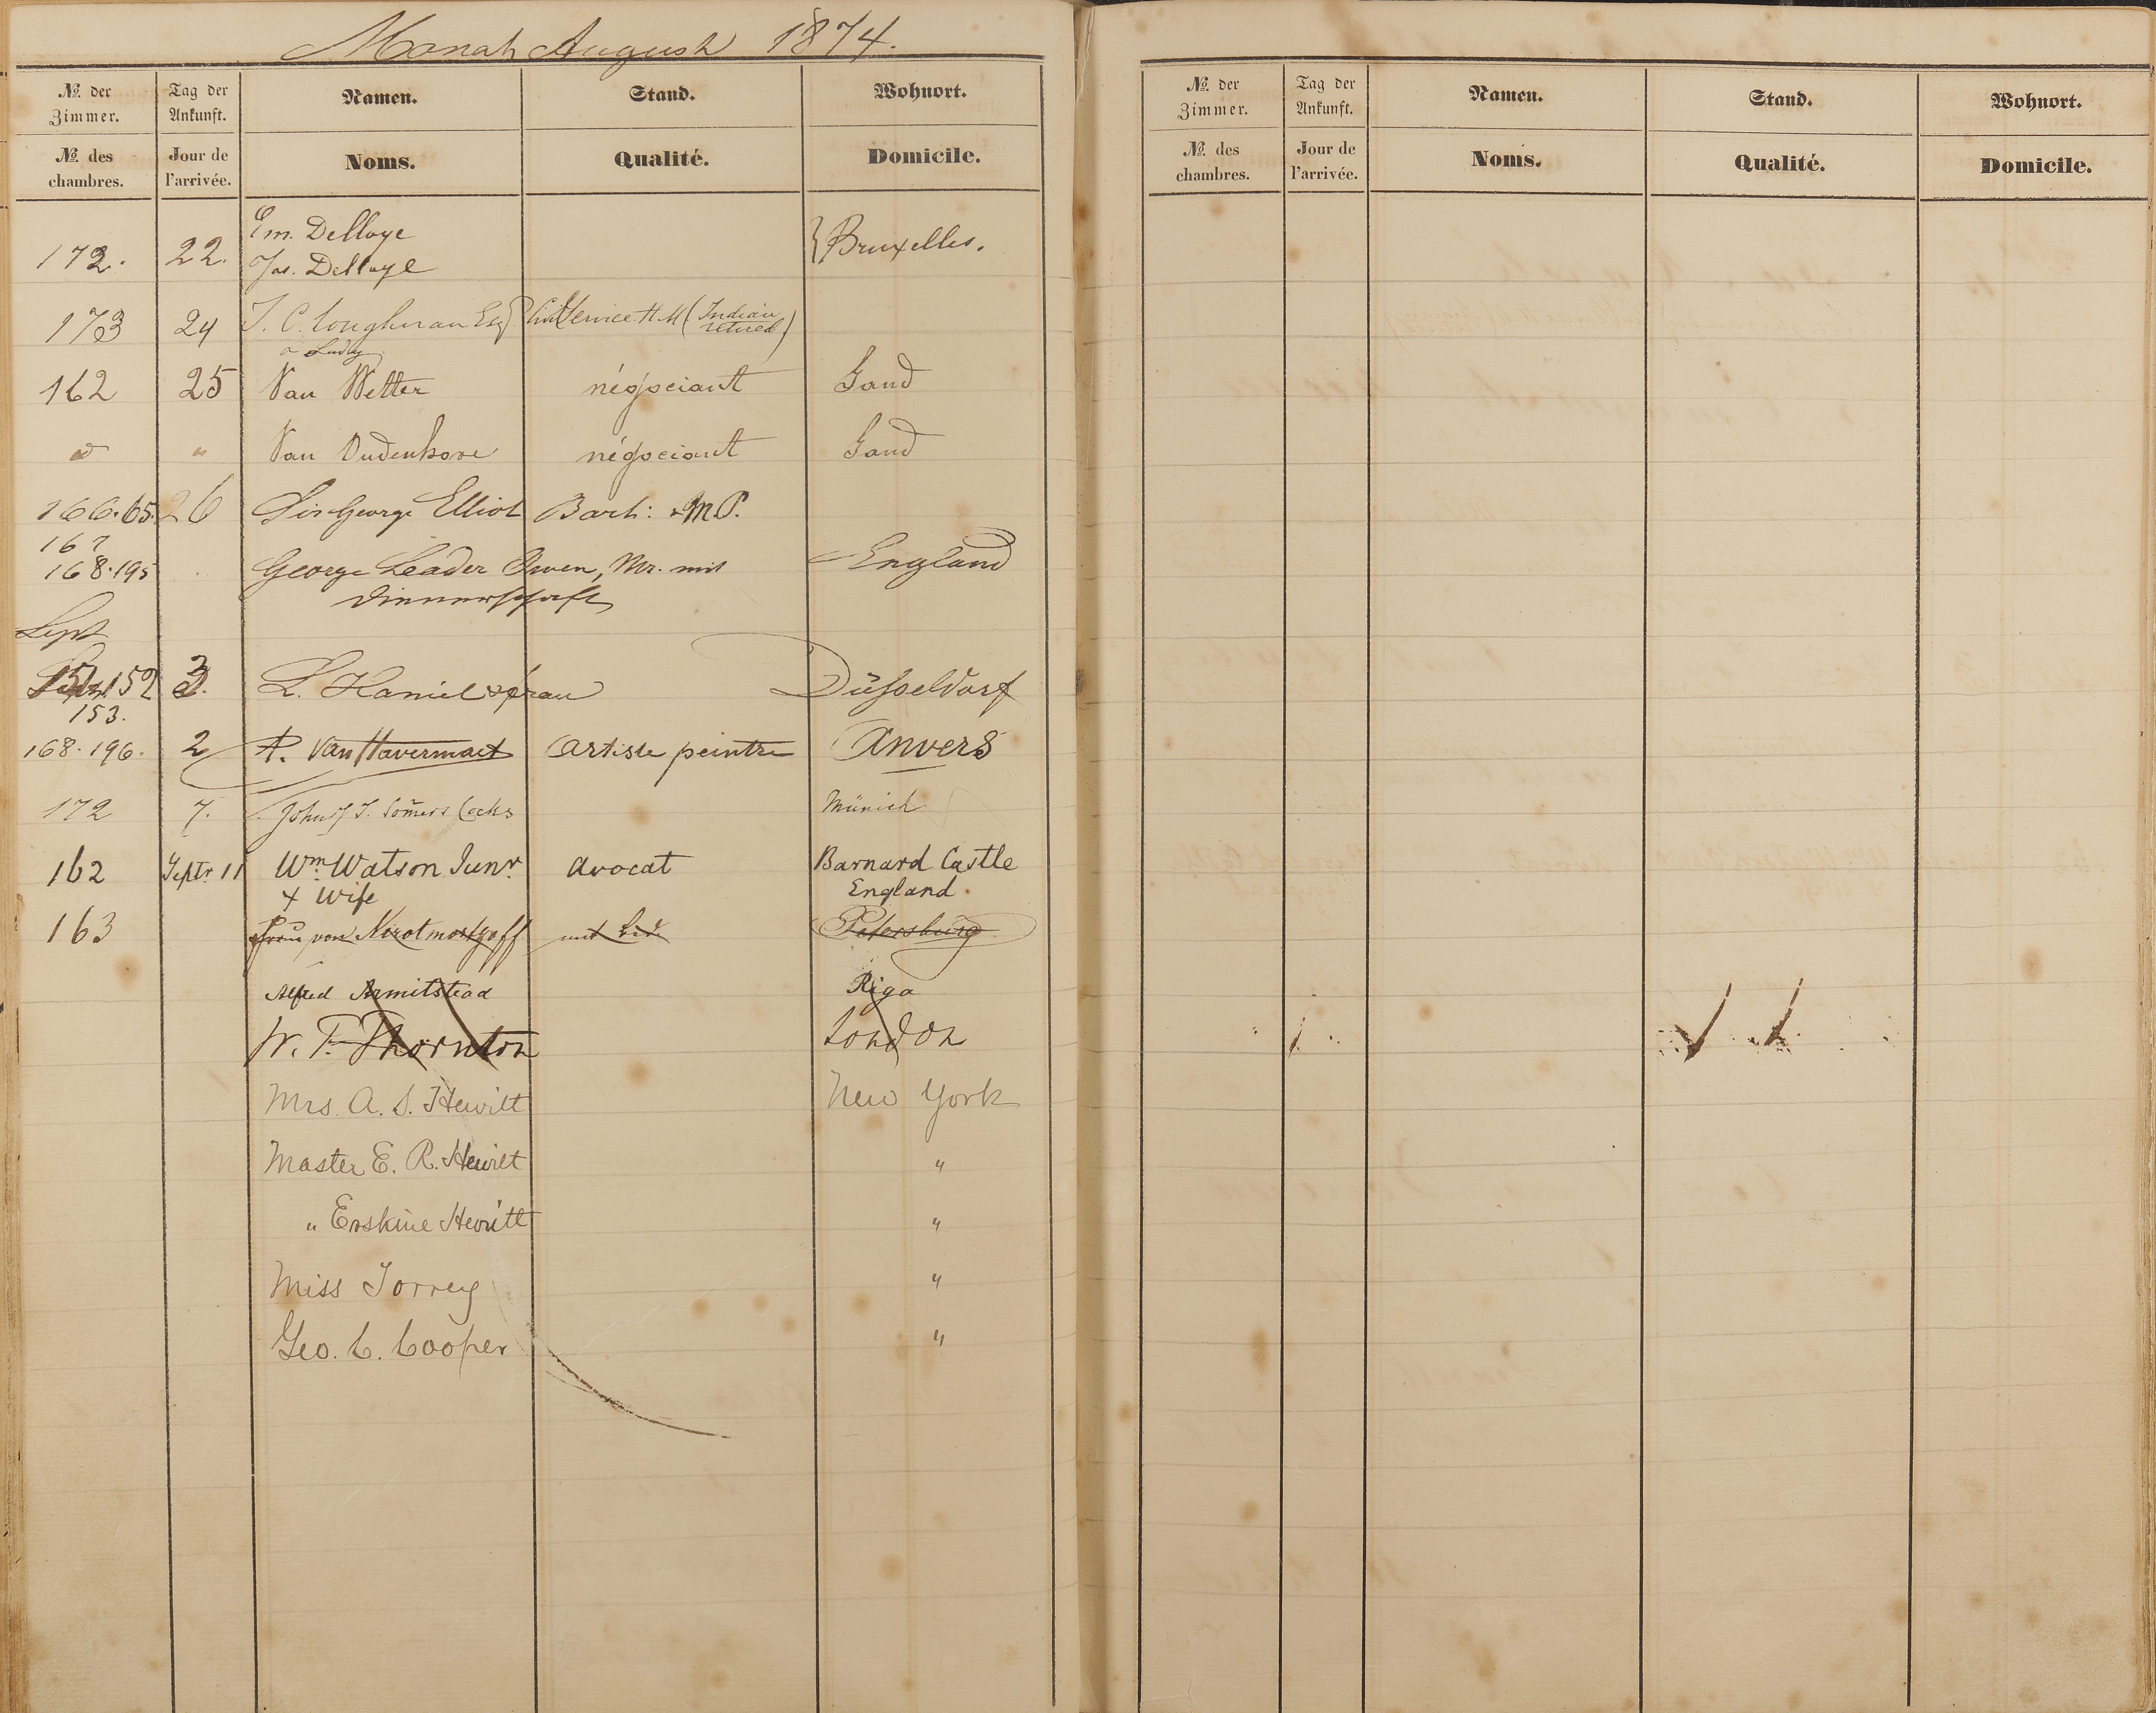 Monat August 1874.
№ der Zimmer. Tag der Ankunft. Namen. Stand. Wohnort.
№ des chambres. Jour de l'arrivée. Noms. Qualité. Domicile.
Em. Delloye
172. 22. } Bruxelles.
Jos. Delloye
173 24 J. C. Loughnan Esq. Civil Service H.M (Indian retired)
& Lady
162 25 Van Wetter négociant Gand
" Van Oudenhove négociant Gand
166.65. 26 Sir George Elliot Bart: M.P.
167
168.195 George Leader Owen, Mr. mit England
Dienerschaft
Sept
152 L. Haniel & frau Düsseldorf
153.
168.196. 2 P. Van Havermaet Artiste peintre Anvers
172 7. John J. T. Somers Cocks Münich
162 Septr 11 Wm. Watson Junr. Avocat Barnard Castle
+ Wife England.
163 Frau von mit Petersburg
Alfred Armitstead Riga
W. T. Thornton London
Mrs. A. S. Hewitt New York
Master E. R. Hewitt "
" Erskine Hewitt "
Miss Torrey "
Geo. C. Cooper "
№ der Zimmer. Tag der Ankunft. Namen. Stand. Wohnort.
№ des chambres. Jour de l'arrivée. Noms. Qualité. Domicile.